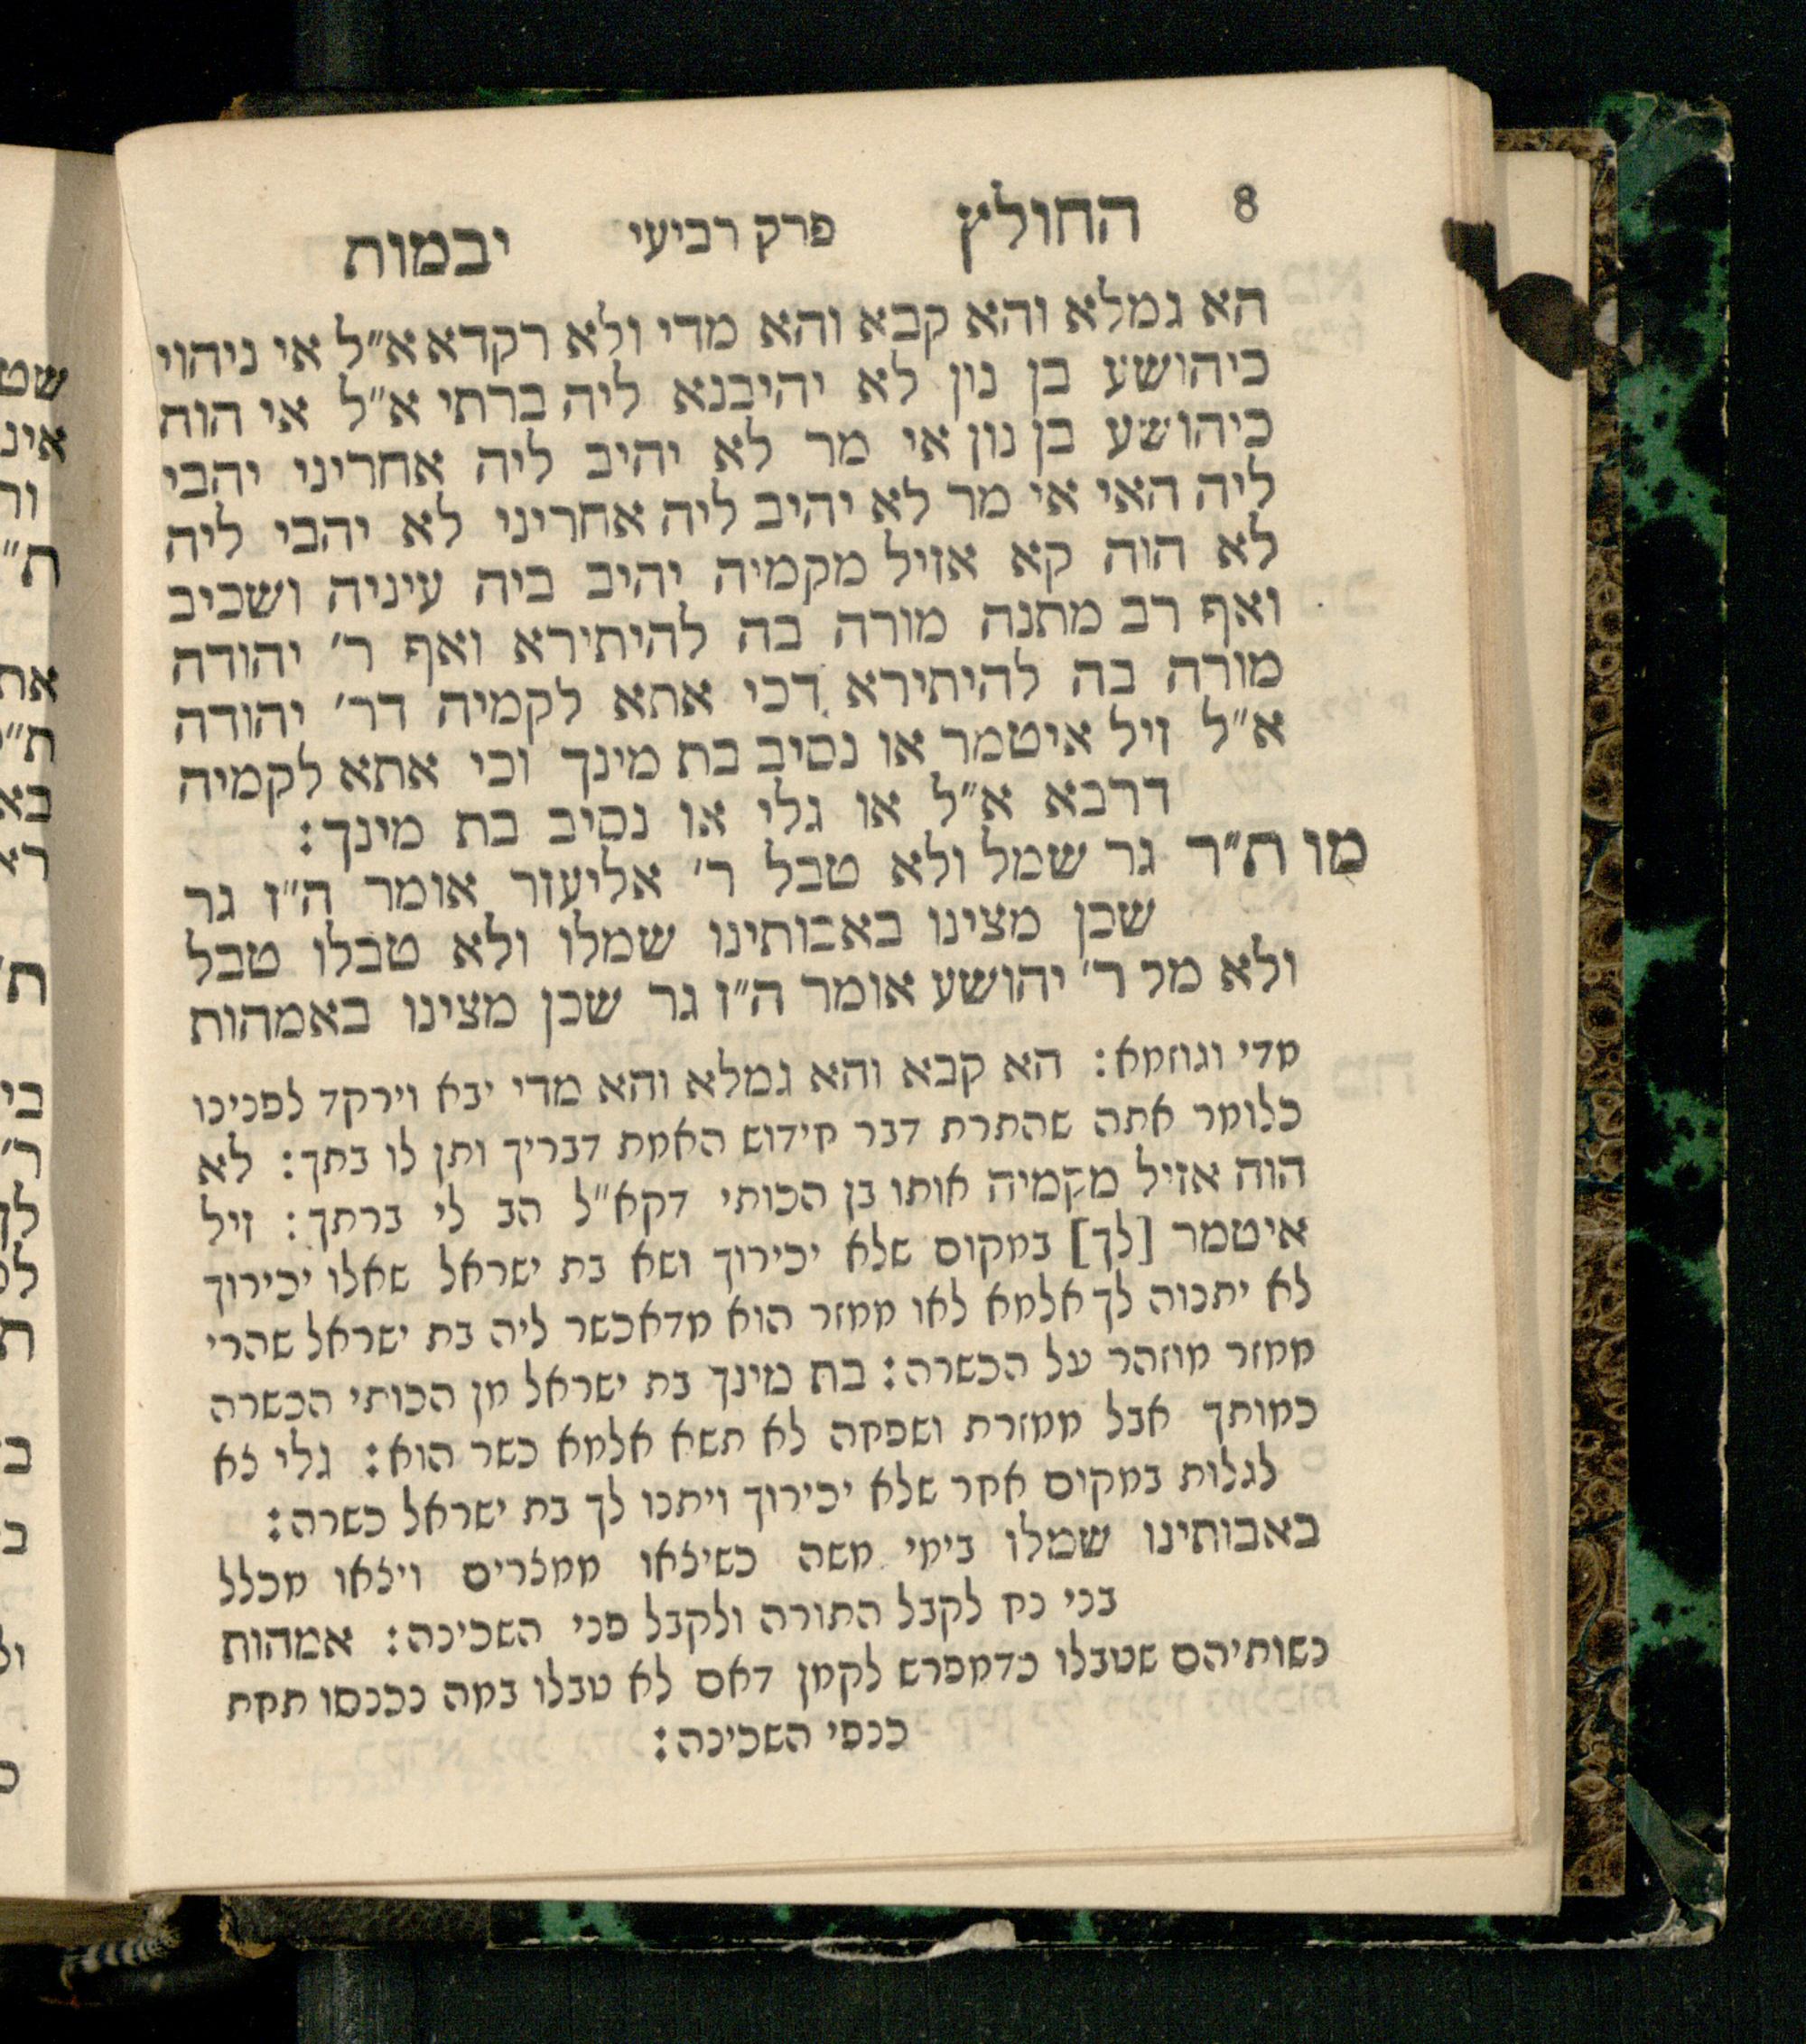 8 החולץ פרק רביעי יבמות
הא גמלא והא קבא והא מדי ולא רקדא א״ל אי ניהוי
כיהושע בן נון לא יהיבנא ליה ברתי א״ל אי הוה
כיהושע בן נון אי מר לא יהיב ליה אחריני יהבי
ליה האי אי מר לא יהיב ליה אחריני לא יהבי ליה
לא הוה קא אזיל מקמיה יהיב ביה עיניה ושכיב
ואף רב מתנה מורה בה להיתירא ואף ר׳ יהודה
מורה בה להיתירא דכי אתא לקמיה דר׳ יהודה
א״ל זיל איטמר או נסיב בת מינך וכי אתא לקמיה
דרבא א״ל או גלי או נסיב בת מינך:
מו ת״ר גר שמל ולא טבל ר׳ אליעזר אומר ה״ז גר
שכן מצינו באבותינו שמלו ולא טבלו טבל
ולא מל ר׳ יהושע אומר ה״ז גר שכן מצינו באמהות
מדי וגוזמא: הא קבא והא גמלא והא מדי יבא וירקד לפנינו
כלומר אתה שהתרת דבר חידוש האמת דבריך ותן לו בתך: לא
הוה אזיל מקמיה אותו בן הכותי דקא״ל הב לי ברתך: זיל
איטמר [לך] במקום שלא יכירוך ושא בת ישראל שאלו יכירוך
לא יתנוה לך אלמא לאו ממזר הוא מדאכשר ליה בת ישראל שהרי
ממזר מוזהר על הכשרה: בת מינך בת ישראל מן הכותי הכשרה
כמותך אבל ממזרת ושפחה לא תשא אלמא כשר הוא: גלי צא
לגלות במקום אחר שלא יכירוך ויתנו לך בת ישראל כשרה:
באבותינו שמלו בימי משה כשיצאו ממצרים ויצאו מכלל
בני נח לקבל התורה ולקבל פני השכינה: אמהות
נשותיהם שטבלו כדמפרש לקמן דאם לא טבלו במה נכנסו תחת
כנפי השכינה: